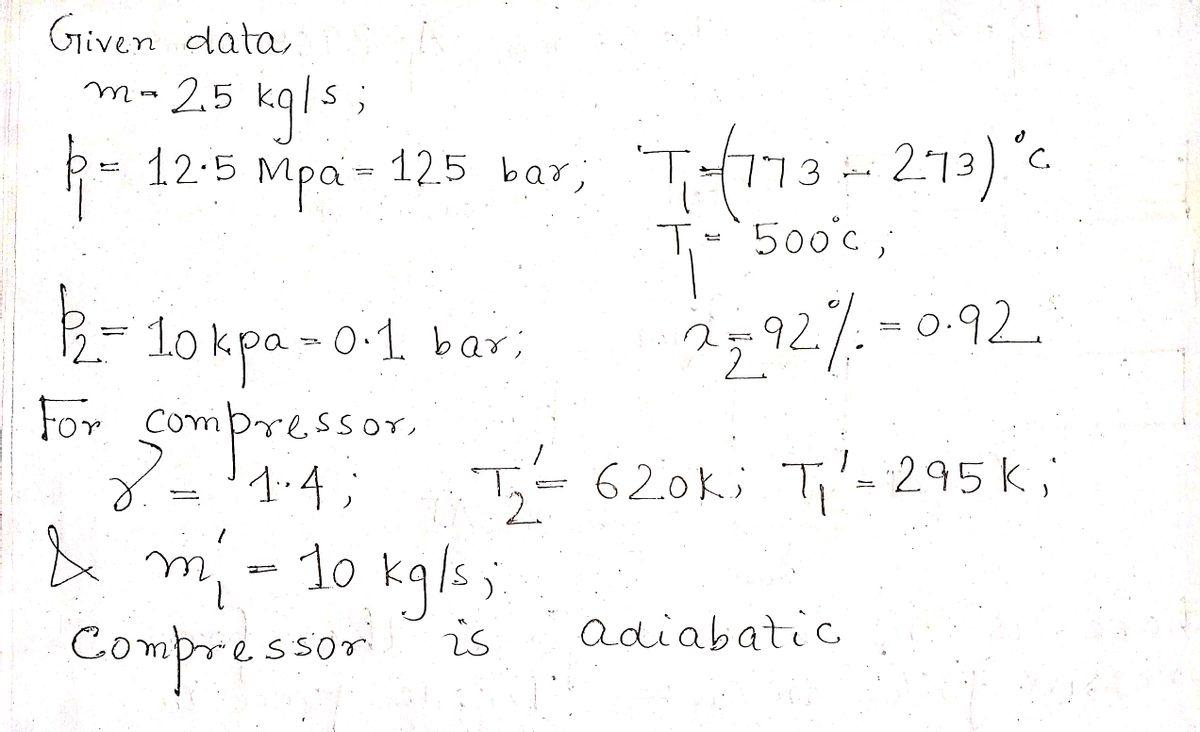 Given data,
m = 25 kg/s ;
p₁ = 12.5 Mpa = 125 bar; T₁ = (773 - 273) °c
T₁ = 500°c ;
p₂ = 10 kpa = 0.1 bar; x₂ = 92% = 0.92
For compressor,
γ = 1.4 ; T₂' = 620K; T₁' = 295 K ;
& m₁' = 10 kg/s ;
Compressor is adiabatic